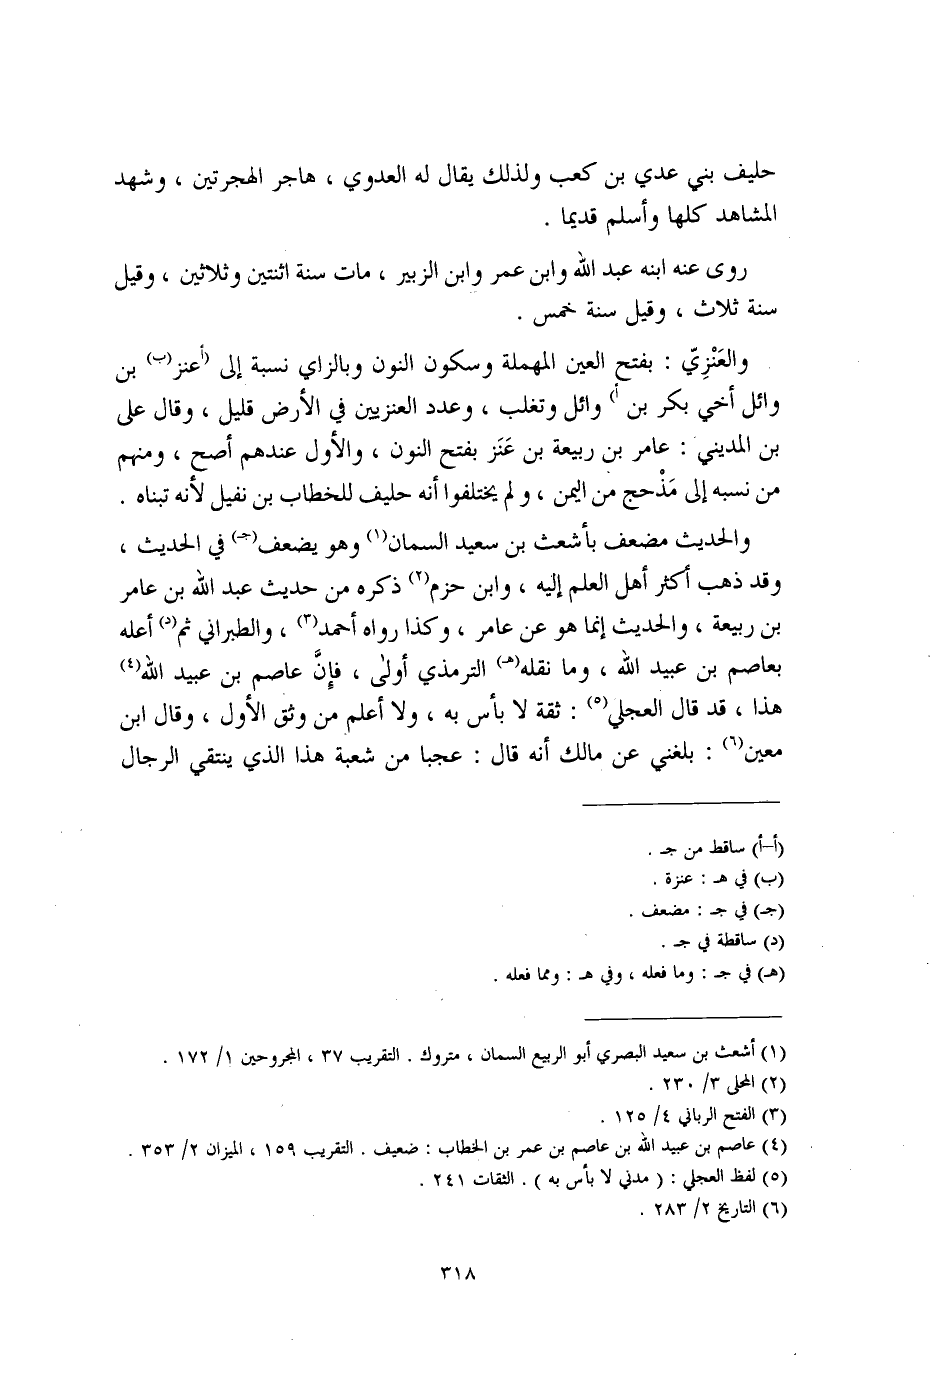 حليف بني عدي بن كعب ولذلك يقال له العدوي ، هاجر الهجرتين ، وشهد
المشاهد كلها وأسلم قديما .
روى عنه ابنه عبد الله وابن عمر وابن الزبير ، مات سنة اثنتين وثلاثين ، وقيل
سنة ثلاث ، وقيل سنة خمس .
والعَنْزِيّ : بفتح العين المهملة وسكون النون وبالزاي نسبة إلى (أ عنز(ب) بن
وائل أخي بكر بن أ) وائل وتغلب ، وعدد العنزيين في الأرض قليل ، وقال على
بن المديني : عامر بن ربيعة بن عَنَز بفتح النون ، والأول عندهم أصح ، ومنهم
من نسبه إلى مَذْحج من اليمن ، و لم يختلفوا أنه حليف للخطاب بن نفيل لأنه تبناه .
والحديث مضعف بأشعث بن سعيد السمان(١) وهو يضعف(جـ) في الحديث ،
وقد ذهب أكثر أهل العلم إليه ، وابن حزم(٢) ذكره من حديث عبد الله بن عامر
بن ربيعة ، والحديث إنما هو عن عامر ، وكذا رواه أحمد(٣) ، والطبراني ثم(د) أعله
بعاصم بن عبيد الله ، وما نقله(هـ) الترمذي أولى ، فإنَّ عاصم بن عبيد الله(٤)
هذا ، قد قال العجلي(٥) : ثقة لا بأس به ، ولا أعلم من وثق الأول ، وقال ابن
معين(٦) : بلغني عن مالك أنه قال : عجبا من شعبة هذا الذي ينتقي الرجال
(أ-أ) ساقط من جـ .
(ب) في هـ : عنزة .
(جـ) في جـ : مضعف .
(د) ساقطة في جـ .
(هـ) في جـ : وما فعله ، وفي هـ : ومما فعله .
(١) أشعث بن سعيد البصري أبو الربيع السمان ، متروك . التقريب ٣٧ ، المجروحين ١/ ١٧٢ .
(٢) المحلى ٣/ ٢٣٠ .
(٣) الفتح الرباني ٤/ ١٢٥ .
(٤) عاصم بن عبيد الله بن عاصم بن عمر بن الخطاب : ضعيف . التقريب ١٥٩ ، الميزان ٢/ ٣٥٣ .
(٥) لفظ العجلي : ( مدني لا بأس به ) . الثقات ٢٤١ .
(٦) التاريخ ٢/ ٢٨٣ .
٣١٨